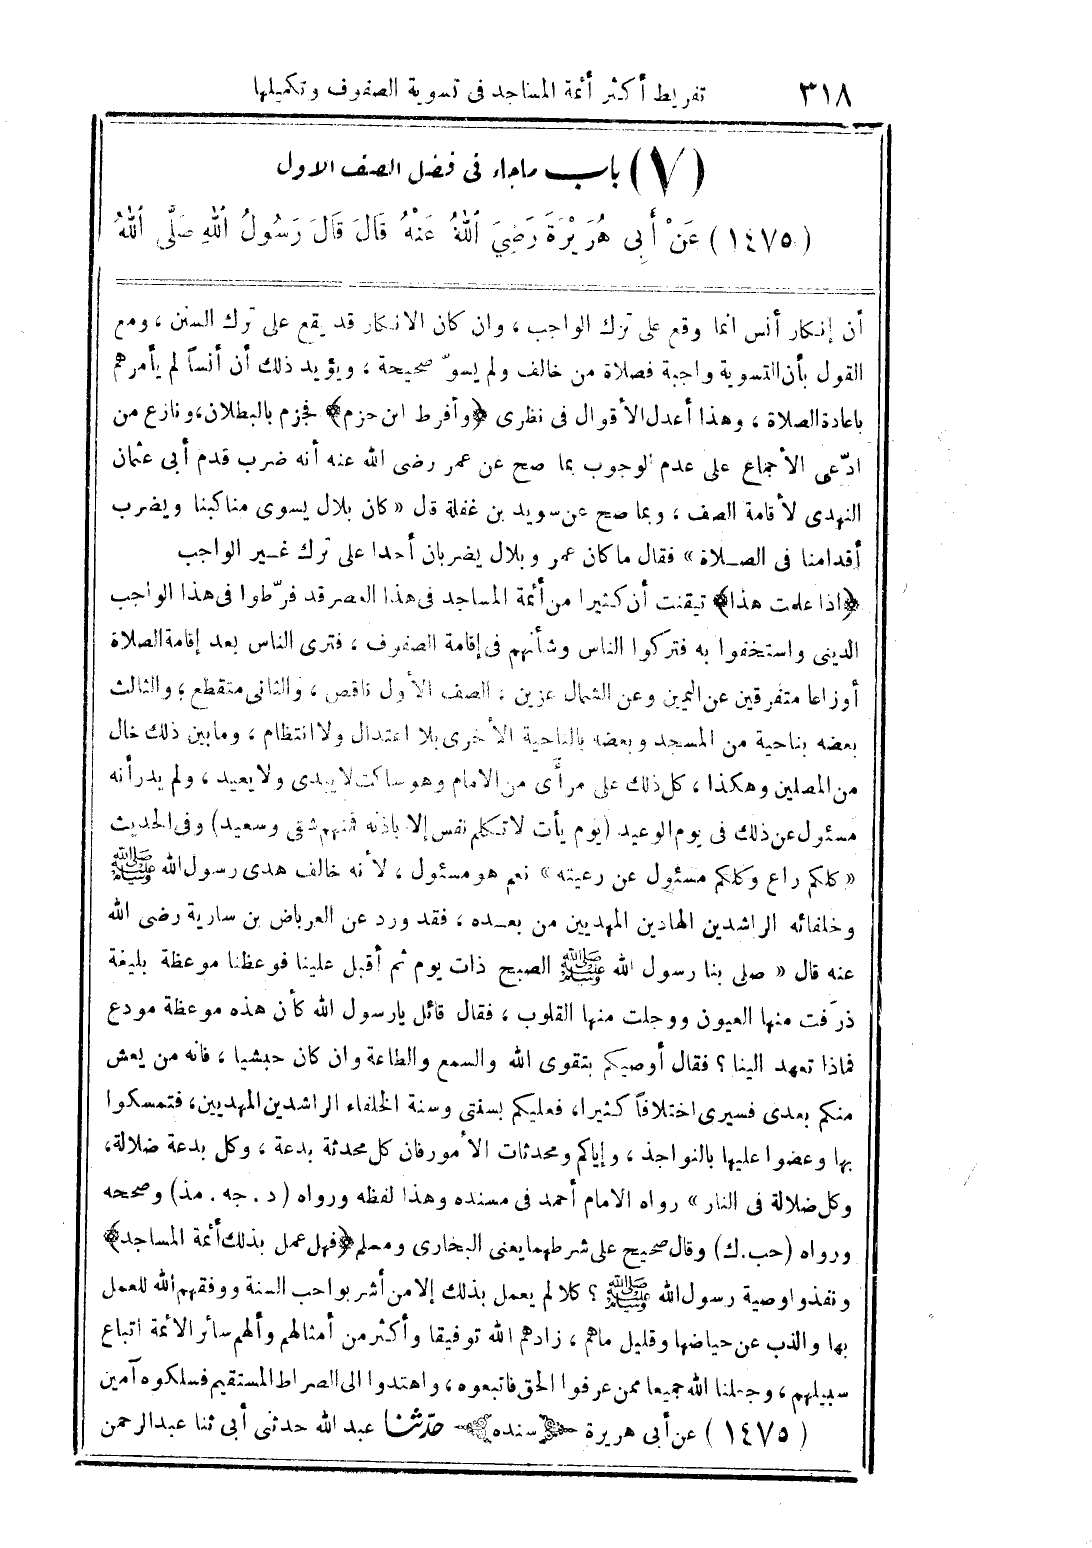 ٣١٨ تفريط أكثر أئمة المساجد فى تسوية الصفوف وتكميلها
(٧) باب ماجاء فى فضل الصف الاول
(١٤٧٥) عَنْ أَبِى هُرَيْرَةَ رَضِىَ اللهُ عَنْهُ قَالَ قَالَ رَسُولُ اللهِ صَلَّى اللهُ
أن إنكار أنس انما وقع على ترك الواجب ، وان كان الانكار قد يقع على ترك السنن ، ومع
القول بأن التسوية واجبة فصلاة من خالف ولم يسوّ صحيحة ، ويؤيد ذلك أن أنساً لم يأمرهم
باعادة الصلاة ، وهذا أعدل الأقوال فى نظرى ﴿وأفرط ابن حزم﴾ فجزم بالبطلان، ونازع من
ادّعى الأجماع على عدم الوجوب بما صح عن عمر رضى الله عنه أنه ضرب قدم أبى عثمان
النهدى لأقامة الصف ، وبما صح عن سويد بن غفلة قال « كان بلال يسوى مناكبنا ويضرب
أقدامنا فى الصـلاة » فقال ما كان عمر وبلال يضربان أحدا على ترك غـير الواجب
﴿اذا علمت هذا﴾ تيقنت أن كثيرا من أئمة المساجد فى هذا العصر قد فرّطوا فى هذا الواجب
الدينى واستخفوا به فتركوا الناس وشأنهم فى إقامة الصفوف ، فترى الناس بعد إقامة الصلاة
أوزاعا متفرقين عن اليمين وعن الشمال عزين ، الصف الأول ناقص ، والثانى متقطع ، والثالث
بعضه بناحية من المسجد وبعضه بالناحية الأخرى بلا اعتدال ولا انتظام ، ومابين ذلك خال
من المصلين وهكذا ، كل ذلك على مرأًى من الامام وهو ساكت لا يبدى ولا يعيد ، ولم يدر أنه
مسئول عن ذلك فى يوم الوعيد (يوم يأت لا تكلم نفس إلا باذنه فمنهم شقى وسعيد) وفى الحديث
« كلكم راع وكلكم مسئول عن رعيته » نعم هو مسئول ، لأنه خالف هدى رسول الله ﷺ
وخلفائه الراشدين الهادين المهديين من بعـده ، فقد ورد عن العرباض بن سارية رضى الله
عنه قال « صلى بنا رسول الله ﷺ الصبح ذات يوم ثم أقبل علينا فوعظنا موعظة بليغة
ذرَفت منها العيون ووجلت منها القلوب ، فقال قائل يارسول الله كأن هذه موعظة مودع
فماذا تعهد الينا ؟ فقال أوصيكم بتقوى الله والسمع والطاعة وان كان حبشيا ، فانه من يعش
منكم بعدى فسيرى اختلافاً كثيرا، فعليكم بسنتى وسنة الخلفاء الراشدين المهديين، فتمسكوا
بها وعضوا عليها بالنواجذ ، وإياكم ومحدثات الأمور فان كل محدثة بدعة ، وكل بدعة ضلالة،
وكل ضلالة فى النار » رواه الامام أحمد فى مسنده وهذا لفظه ورواه (د . جه . مذ) وصححه
ورواه (حب. ك) وقال صحيح على شرطهما يعنى البخارى ومسلم ﴿فهل عمل بذلك أئمة المساجد﴾
ونفذوا وصية رسول الله ﷺ ؟ كلا لم يعمل بذلك إلا من أشربوا حب السنة ووفقهم الله للعمل
بها والذب عن حياضها وقليل ماهم ، زادهم الله توفيقا وأكثر من أمثالهم وألهم سائر الائمة اتباع
سبيلهم ، وجعلنا الله جميعا ممن عرفوا الحق فاتبعوه ، واهتدوا الى الصراط المستقيم فسلكوه آمين
(١٤٧٥) عن أبى هريرة ﴿سنده﴾ حدّثنا عبد الله حدثنى أبى ثنا عبد الرحمن